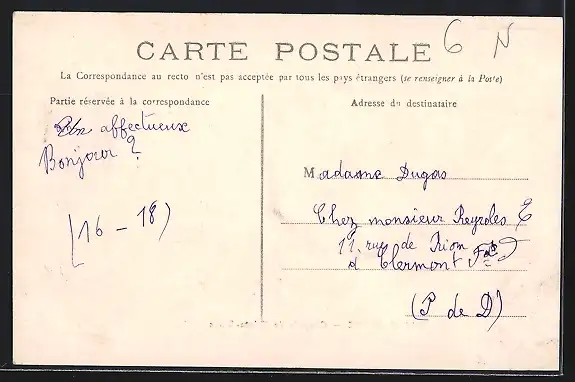 6 N
CARTE POSTALE
La Correspondance au recto n'est pas acceptée par tous les pays étrangers (se renseigner à la Poste)
Partie réservée à la correspondance
Adresse du destinataire
affectueux
Bonjour ?
(16 - 18)
Madame Dugas
Chez monsieur Reyroles E
11. rue de Riom
à Clermont Fd
(P de D)